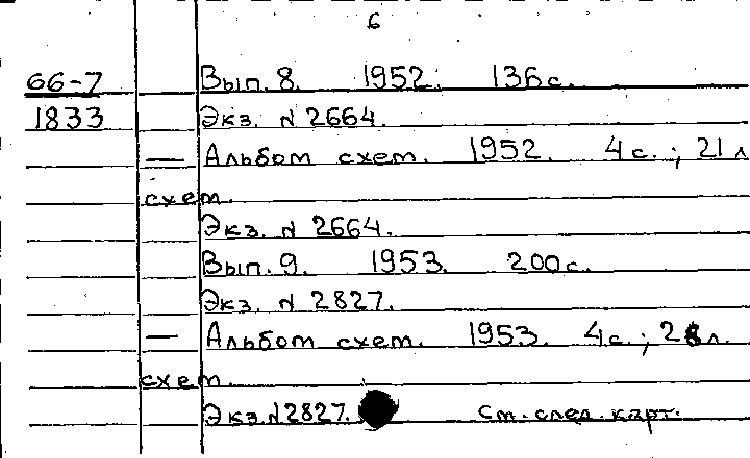 6
66-7 Вып. 8. 1952. 136 с.
1833 Экз. № 2664.
— Альбом схем. 1952. 4 с. ; 21 л
схем.
Экз. № 2664.
Вып. 9. 1953. 200 с.
Экз. № 2827.
— Альбом схем. 1953. 4 с. ; л.
схем.
Экз. № 2827. См. след. карт.